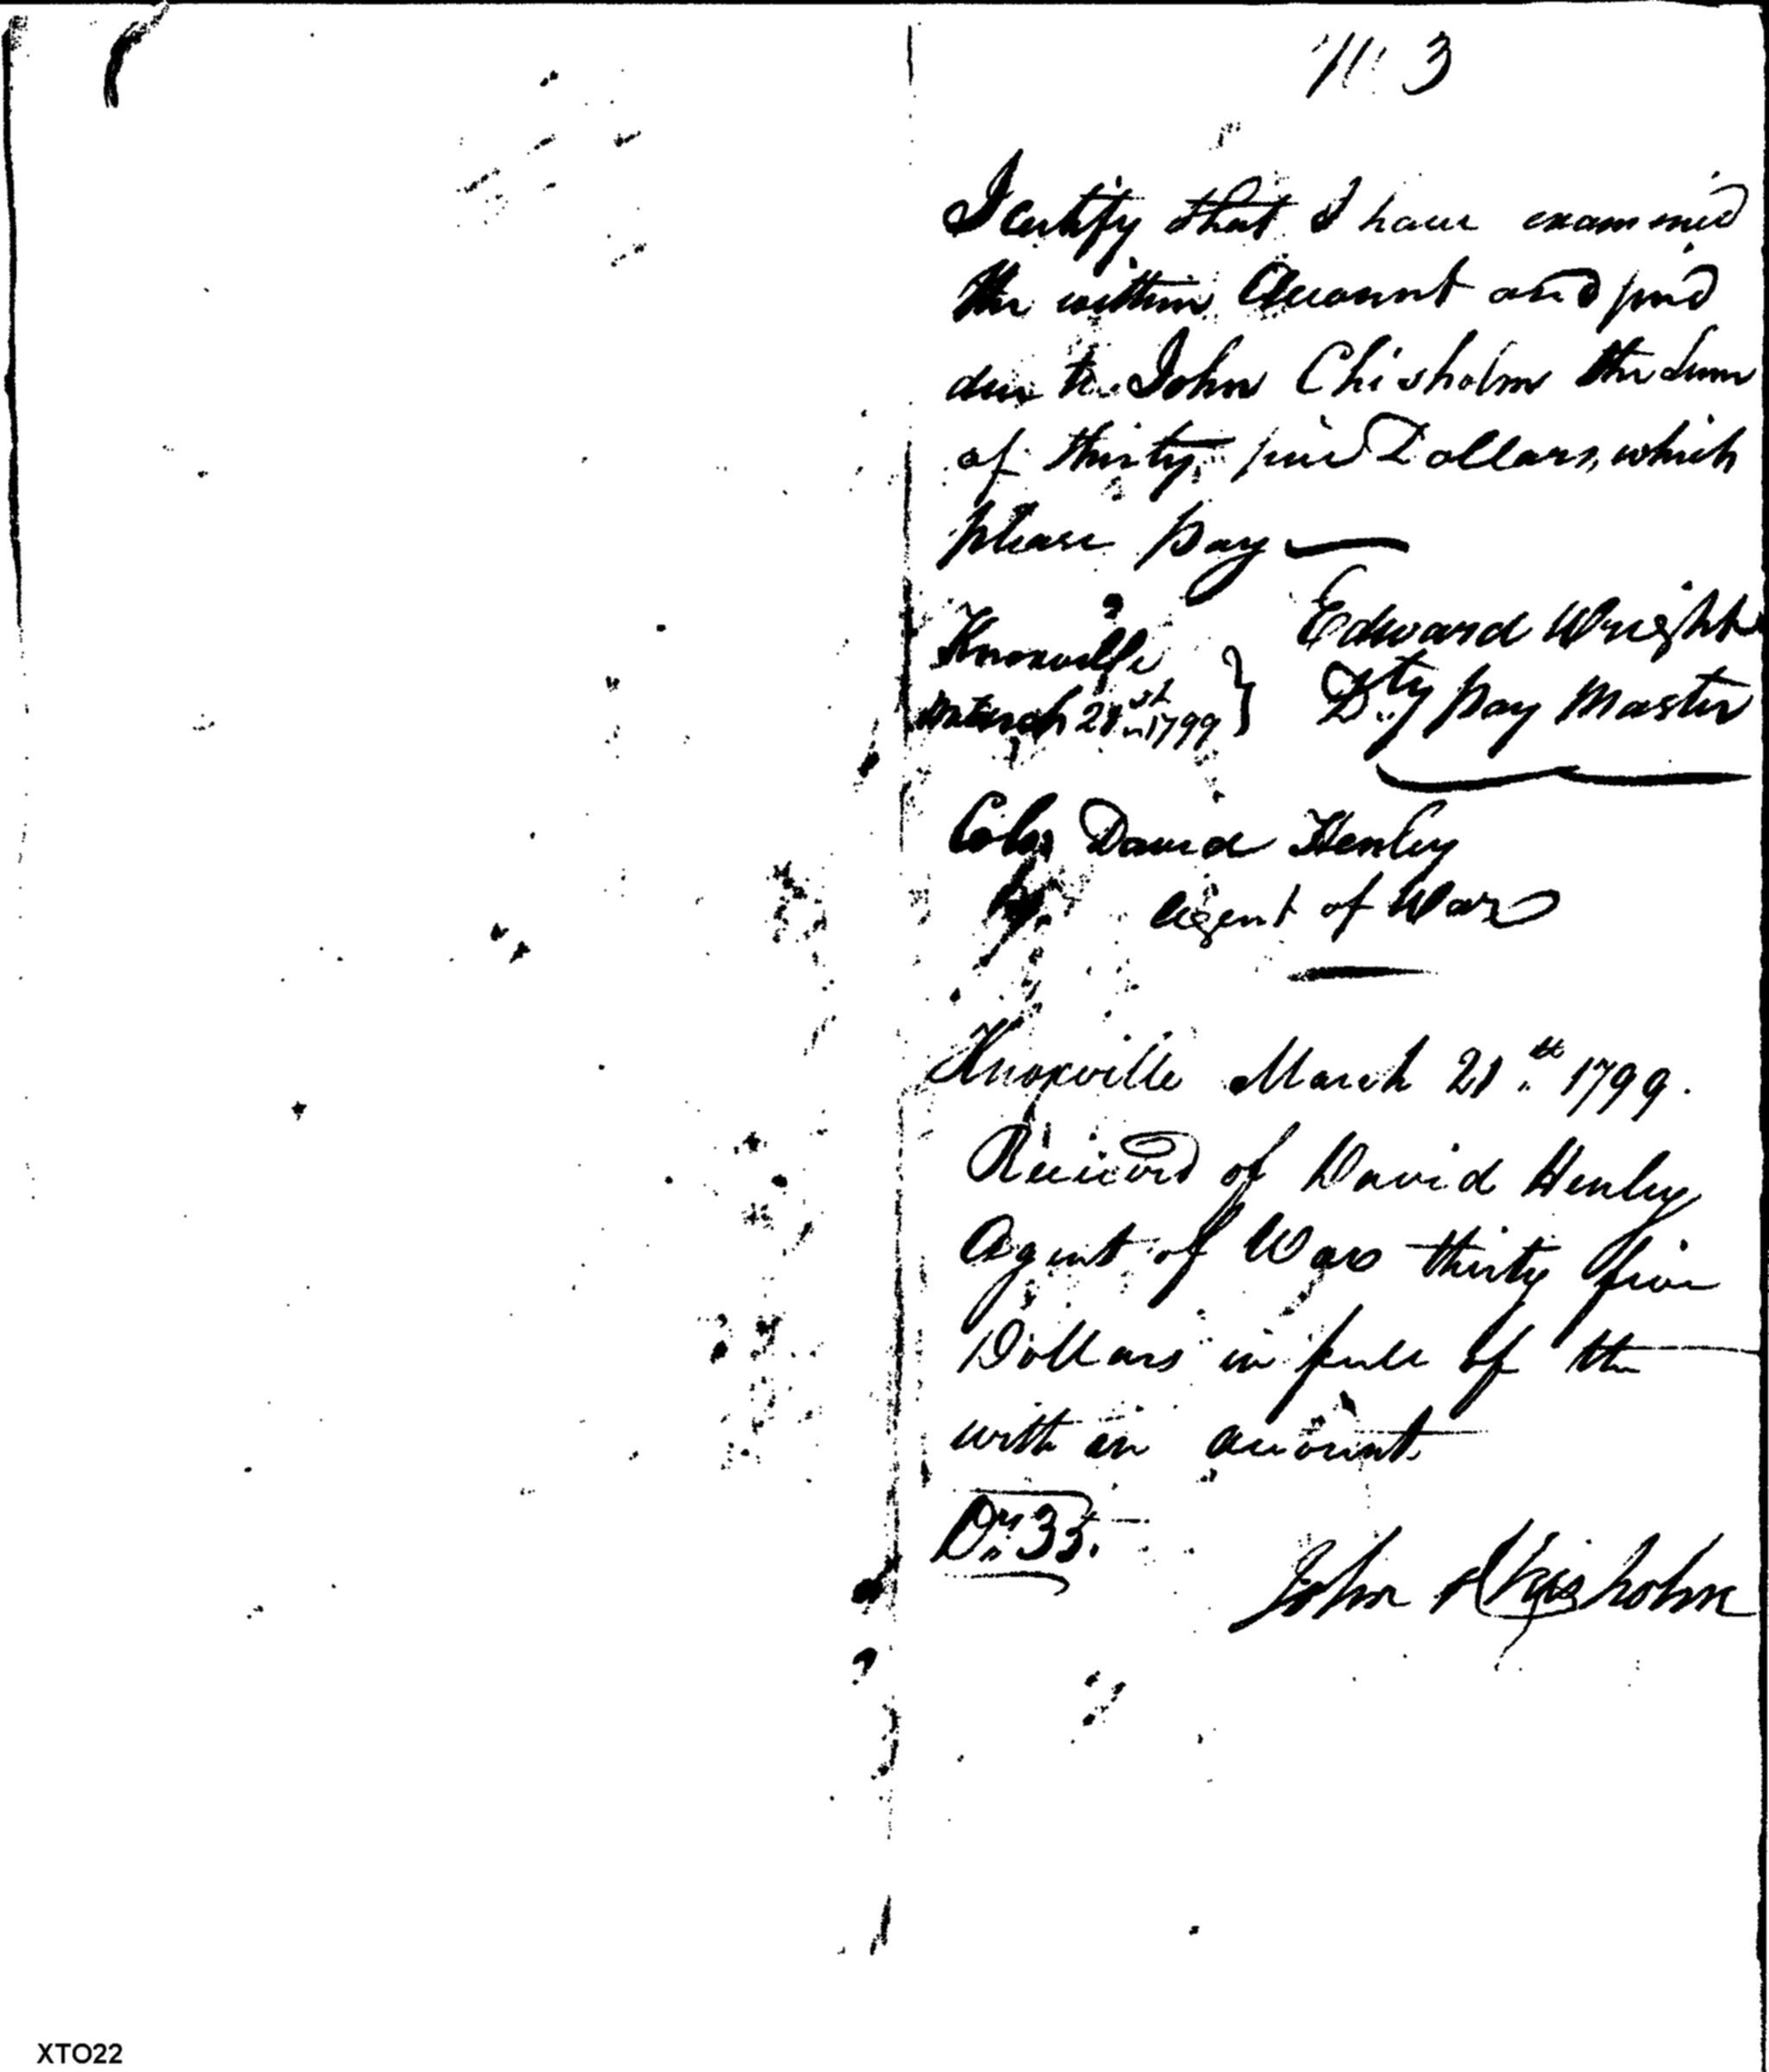 No. 3
I certify that I have examined
the within Account and find
due to John Chisholm the Sum
of thirty five Dollars, which
please pay —
Edward Wright
Knoxville
March 21st 1799 } Dty. Pay Master
Colo. David Henley
Agent of War
Knoxville March 21st. 1799.
Received of David Henley
Agent of War thirty five
Dollars in full of the
with in account
Drs. 35.
John Chisholm
XTO22